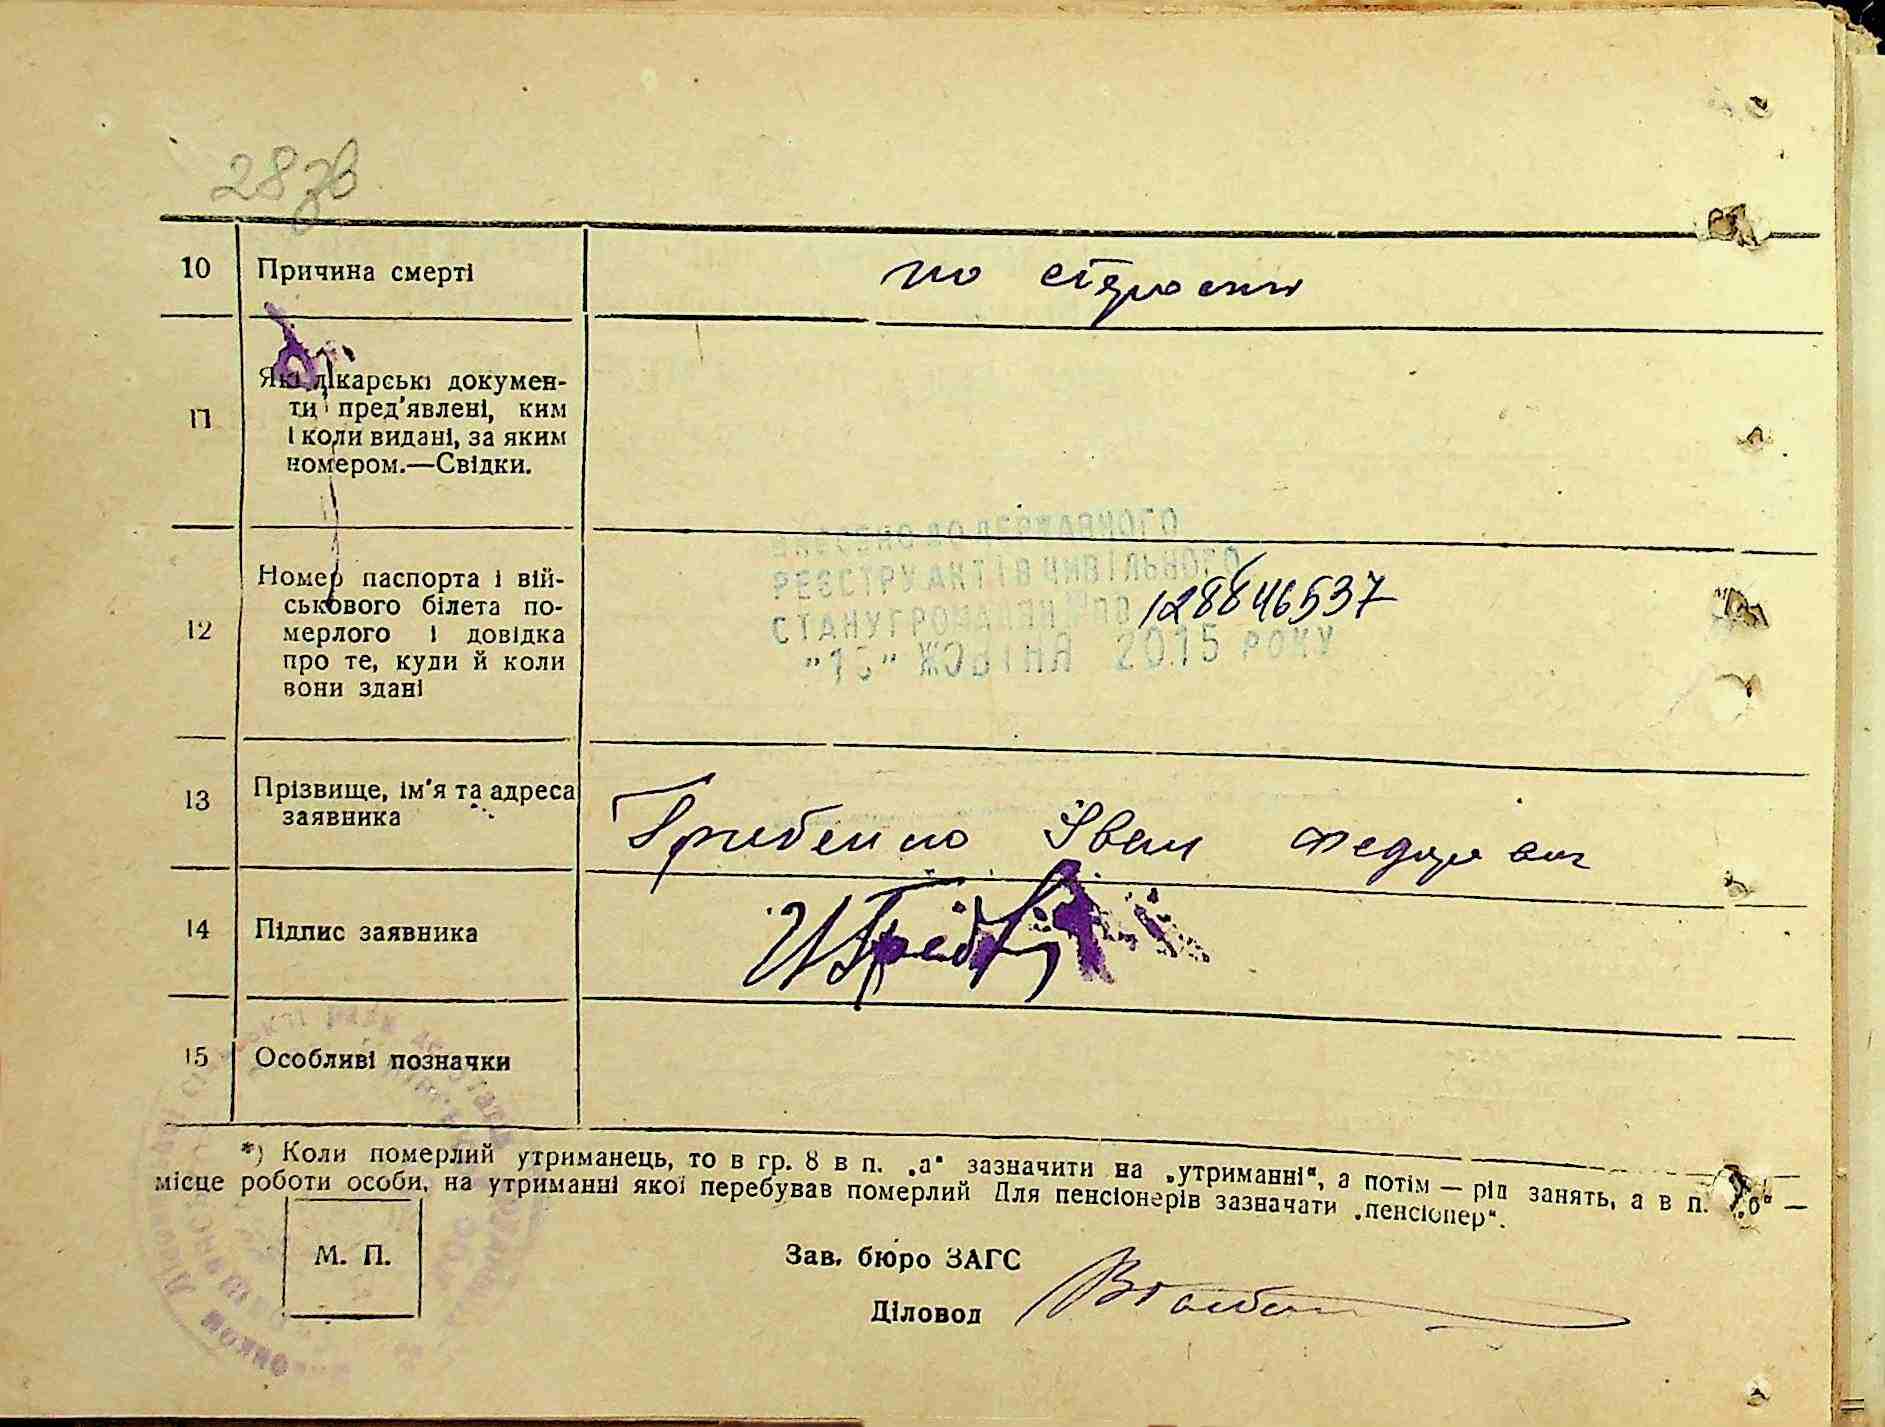 28 зв
10 Причина смерті по старости
11 Які лікарські докумен-
ти пред'явлені, ким
і коли видані, за яким
номером.—Свідки.
ВНЕСЕНО ДО ДЕРЖАВНОГО
РЕЄСТРУ АКТІВ ЦИВІЛЬНОГО
СТАНУ ГРОМАДЯН
"15" ЖОВТНЯ 2015 РОКУ
12 Номер паспорта і вій-
ськового білета по-
мерлого і довідка
про те, куди й коли
вони здані
13 Прізвище, ім'я та адреса
заявника
Грибенко Іван Федорович
14 Підпис заявника
15 Особливі позначки
*) Коли померлий утриманець, то в гр. 8 в п. „а" зазначити на „утриманні", а потім — рід занять, а в п. „б" —
місце роботи особи, на утриманні якої перебував померлий Для пенсіонерів зазначати „пенсіонер".
М. П.
Зав. бюро ЗАГС
Діловод